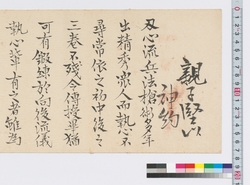 親子堅以
神約
心流兵法槍術多年
出精於衆人而執心不
尋常依之初中後之
三巻不残令傳授畢猶
可有鍛練於向後流儀
執心輩有之者雖為